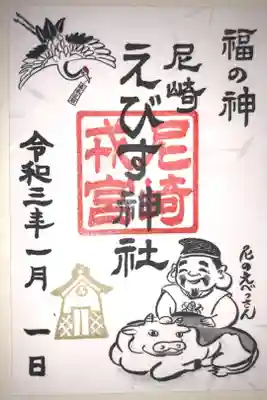 福の神
尼崎
えびす神社
尼崎
戎宮
令和三年一月 一日
尼のえべっさん